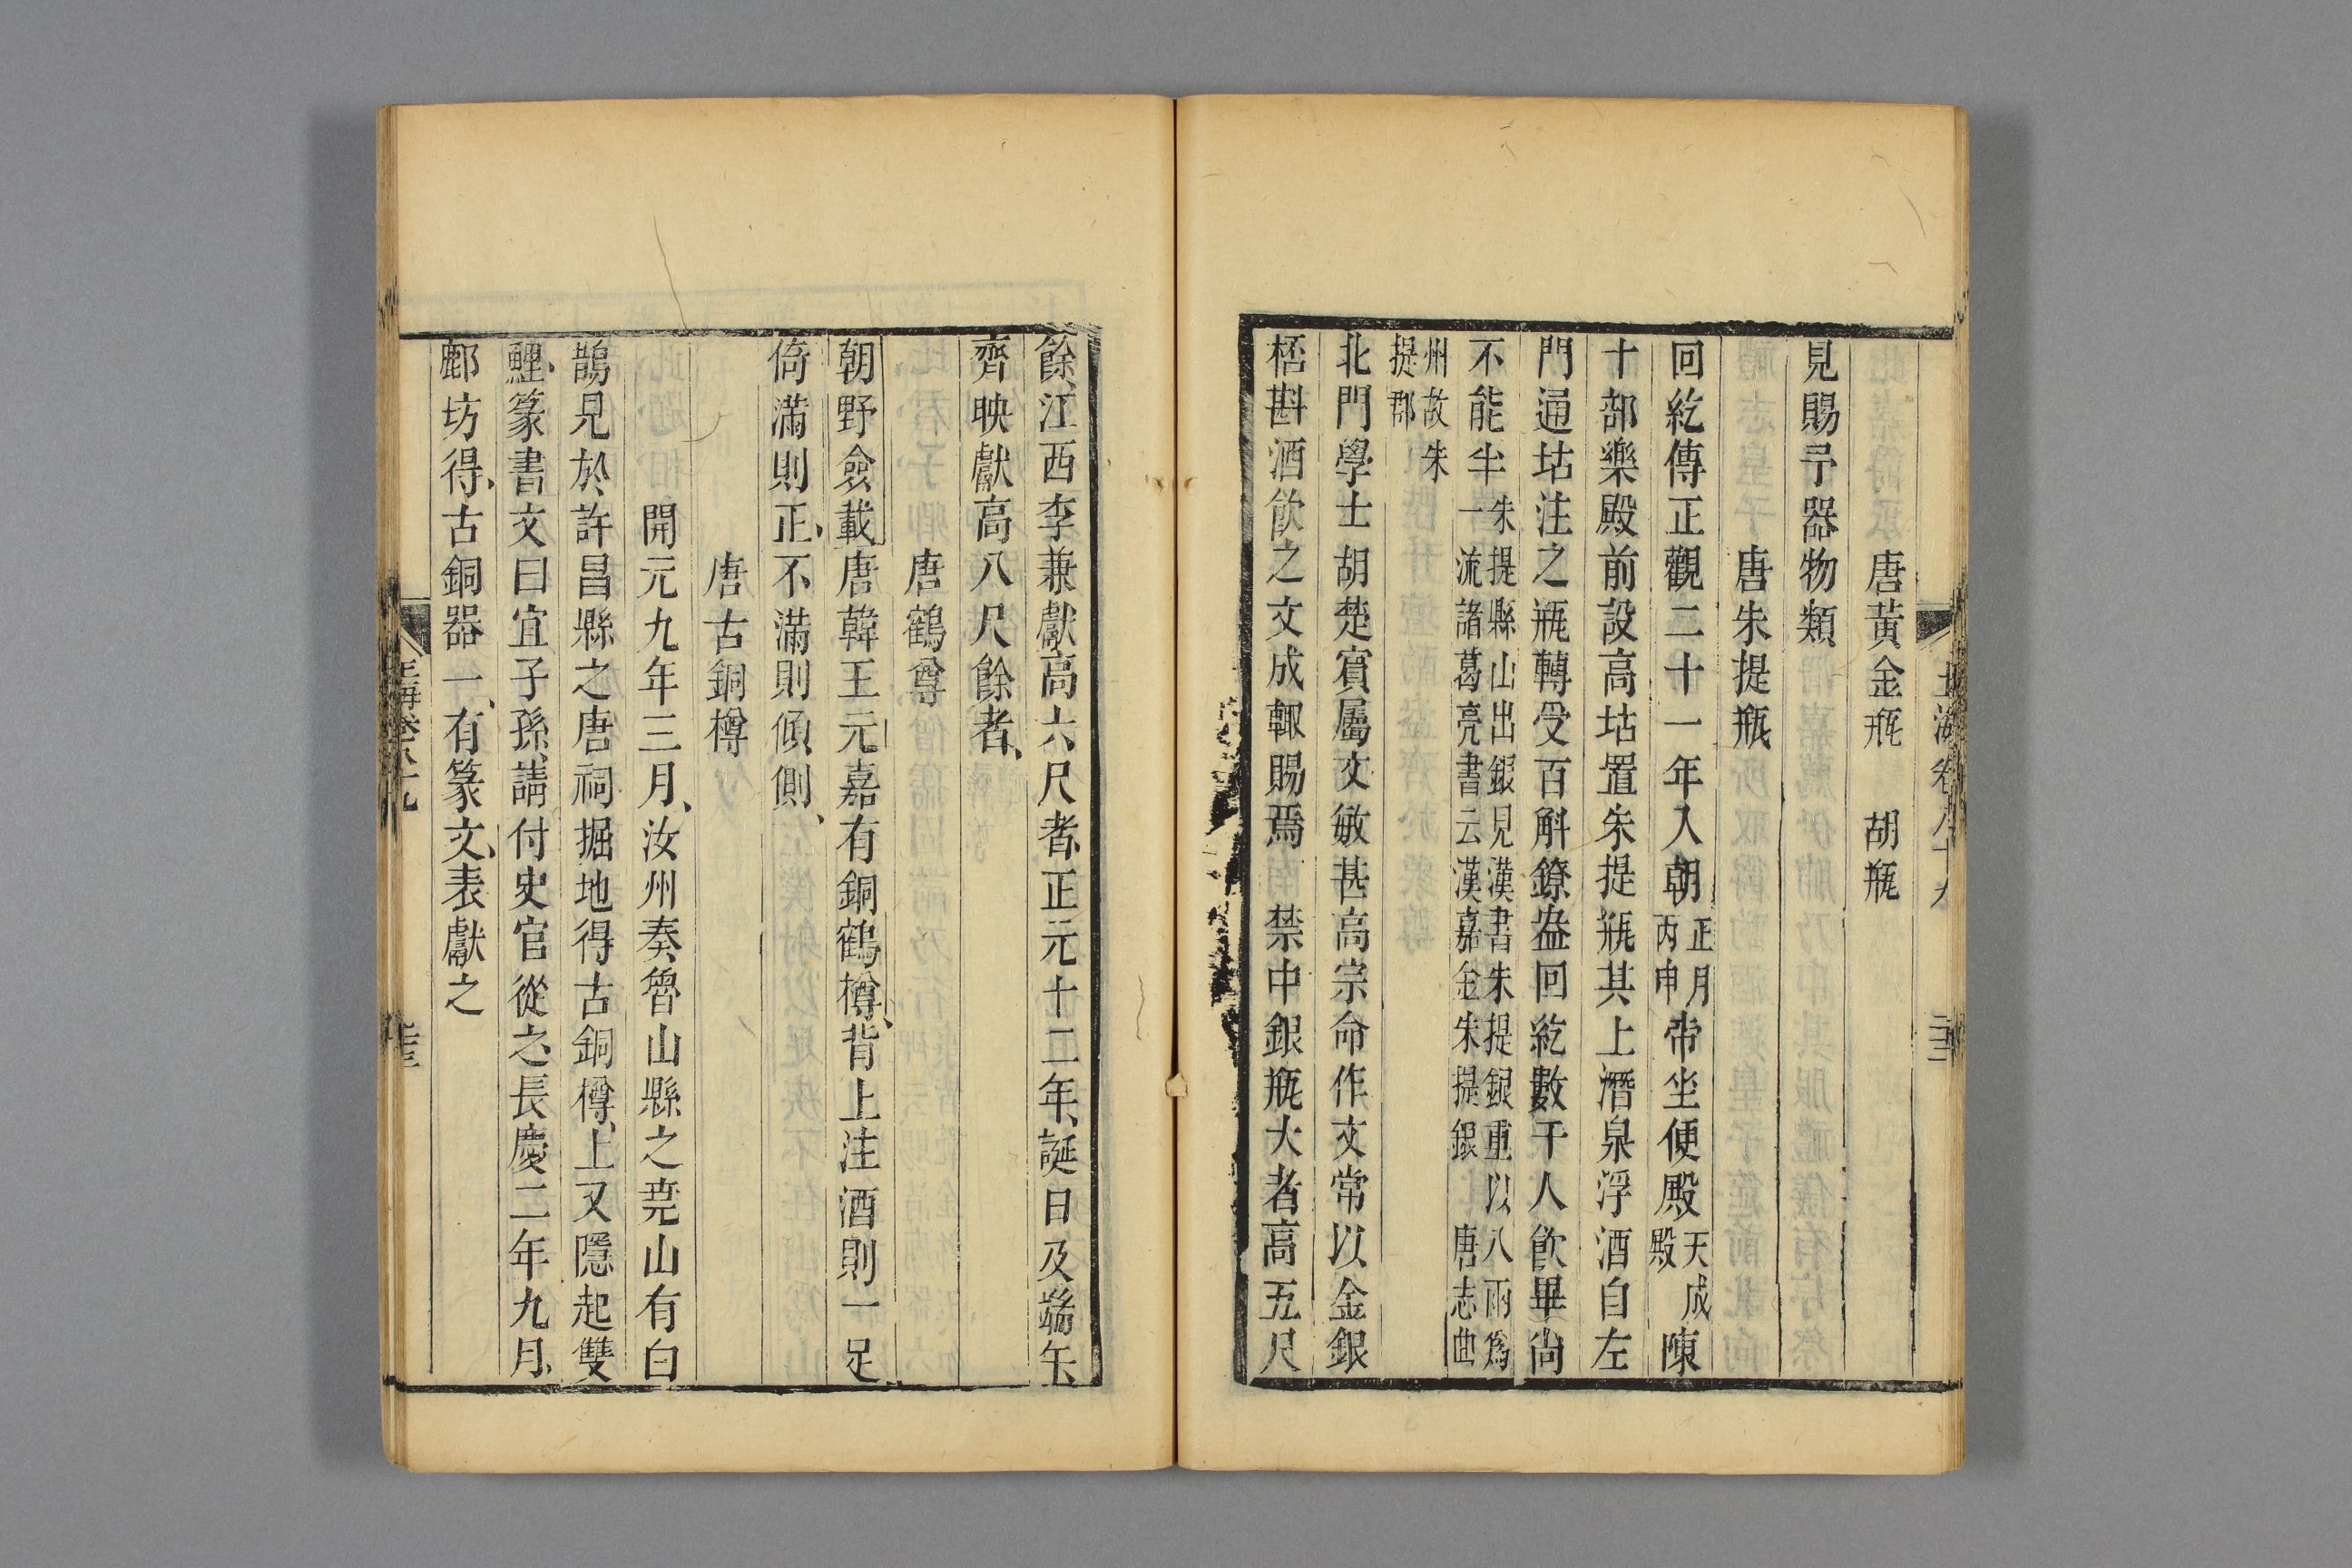 唐黃金瓶　胡瓶
見賜予器物類
唐朱提瓶
回紇傳正觀二十一年入朝正月丙申帝坐便殿天成殿陳
十部樂殿前設高坫置朱提瓶其上潛泉浮酒自左
門通坫注之瓶轉受百斛鐐盎回紇數千人飲畢尚
不能半朱提縣山出銀見漢書朱提銀重以八兩爲一流諸葛亮書云漢嘉金朱提銀　唐志曲
州故朱提郡
北門學士胡楚賓屬文敏甚高宗命作文常以金銀
桮斟酒飲之文成輒賜焉　禁中銀瓶大者高五尺
餘、江西李兼獻高六尺者、正元十二年、誕日及端午、
齊映獻高八尺餘者、
唐鶴罇
朝野僉載唐韓王元嘉有銅鶴樽、背上注酒則一足
倚滿則正、不滿則傾側、
唐古銅樽
開元九年三月、汝州奏魯山縣之堯山有白
鵲見於許昌縣之唐祠掘地得古銅樽、上又隱起雙
鯉、篆書文曰宜子孫、請付史官從之、長慶二年九月、
鄜坊得、古銅器一、有篆文、表獻之
玉海卷八十九